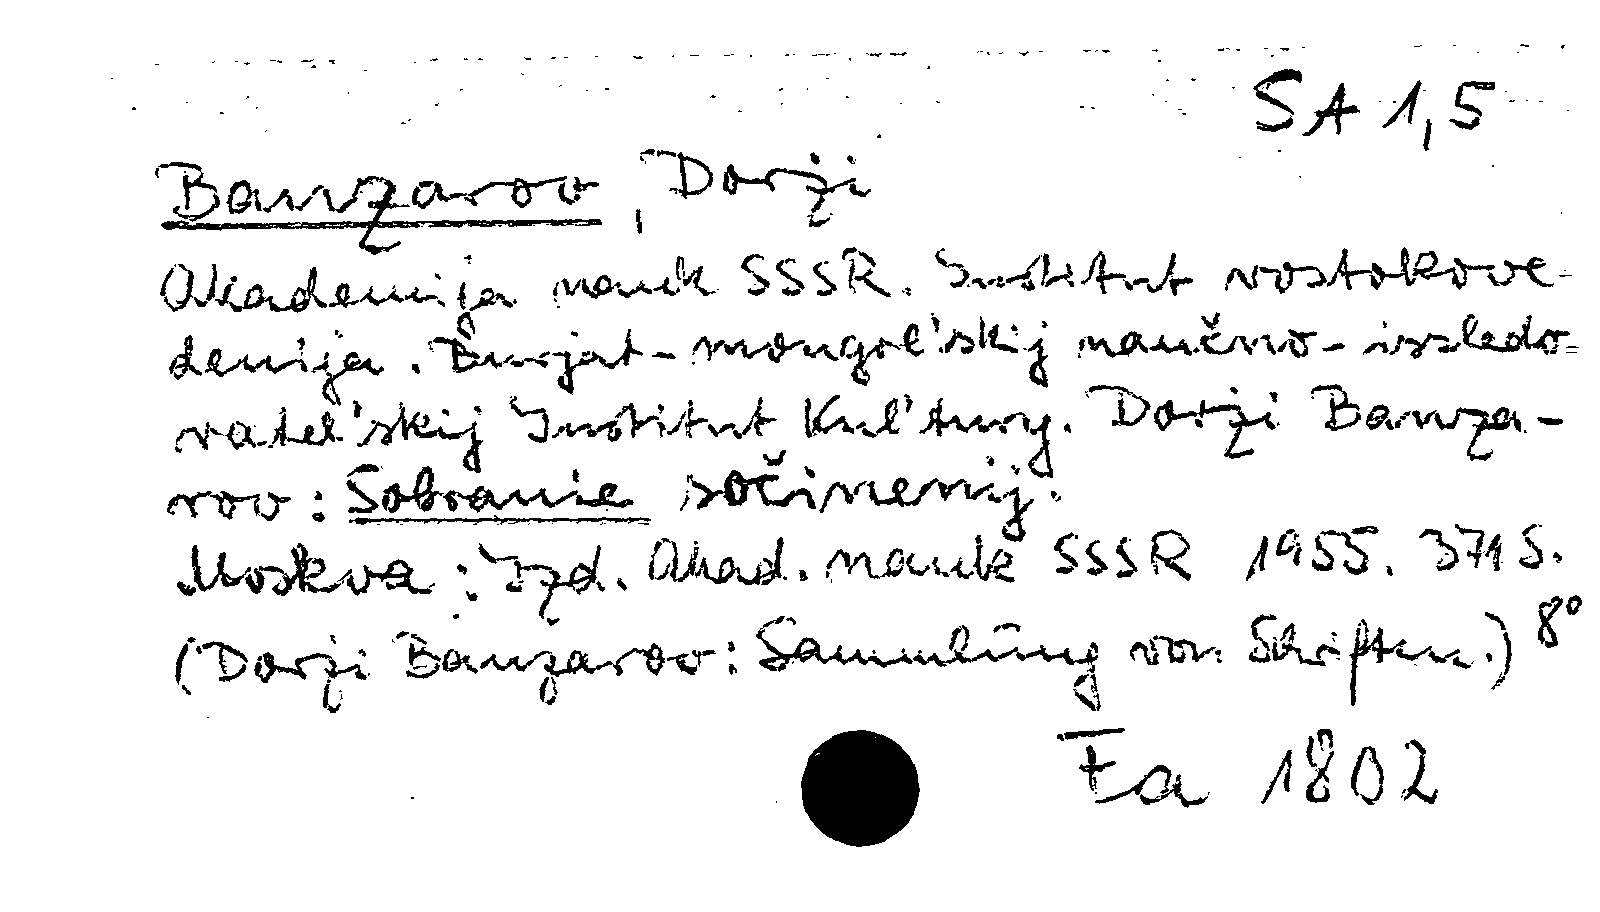 SA 1,5
Banzarov, Dorži
Akademija nauk SSSR. Institut vostokove-
denija. Burjat-mongol'skij naučno-issledo-
vatel'skij Institut Kul'tury. Dorži Banza-
rov: Sobranie sočinenij.
Moskva: Izd. Akad. nauk SSSR 1955. 371 S.
(Dorži Banzarov: Sammlung von Schriften.) 8°
Fa 1802